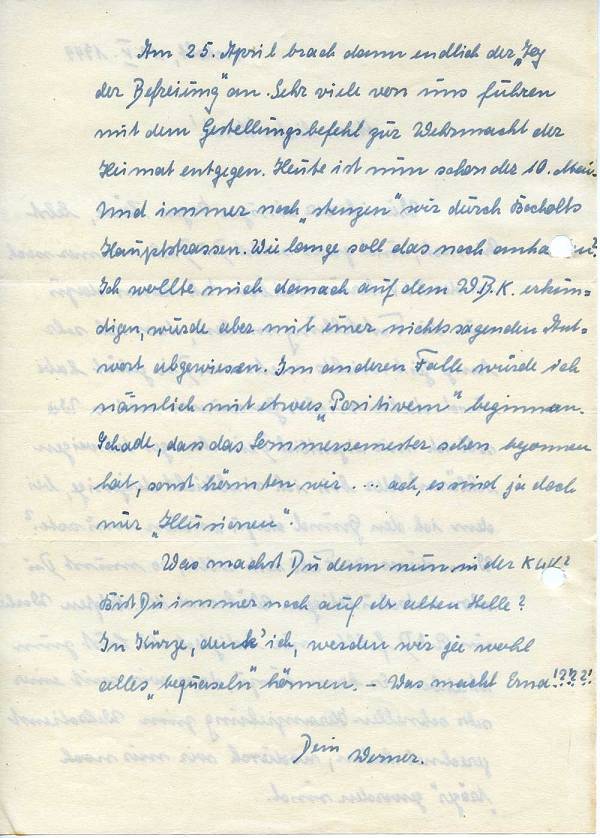 Am 25. April brach dann endlich der „Tag
der Befreiung“ an. Sehr viele von uns fuhren
mit dem Gestellungsbefehl zur Wehrmacht der
Heimat entgegen. Heute ist nun schon der 10. Mai.
Und immer noch „stenzen“ wir durch Bocholts
Hauptstrassen. Wie lange soll das noch
Ich wollte mich danach auf dem W.B.K. erkun-
digen, wurde aber mit einer nichtssagenden Ant-
wort abgewiesen. Im anderen Falle würde ich
nämlich mit etwas „Positivem“ beginnen.
Schade, dass das Sommersemester schon begonnen
hat, sonst könnten wir .... ach, es sind ja doch
nur „Illusionen“.
Was machst Du denn nun in der
Bist Du immer noch auf der alten Stelle?
In Kürze, denk' ich, werden wir ja wohl
alles „bequasseln“ können. – Was macht Erna!?!?!?!
Dein
Werner.